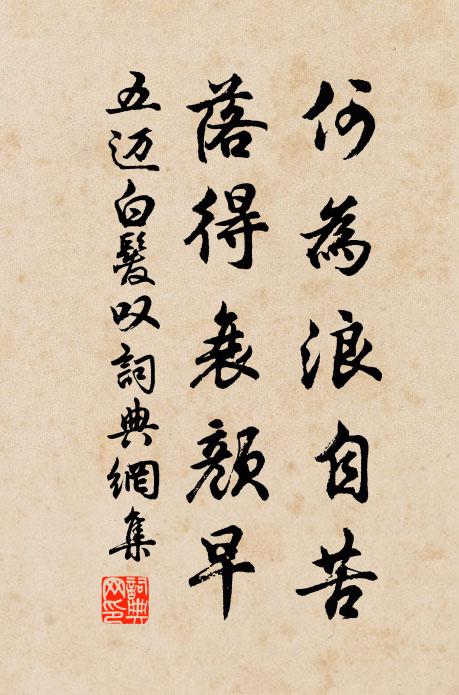 何為浪自苦
落得衰顏早
五迈白髮叹詞典網集
詞典
网印